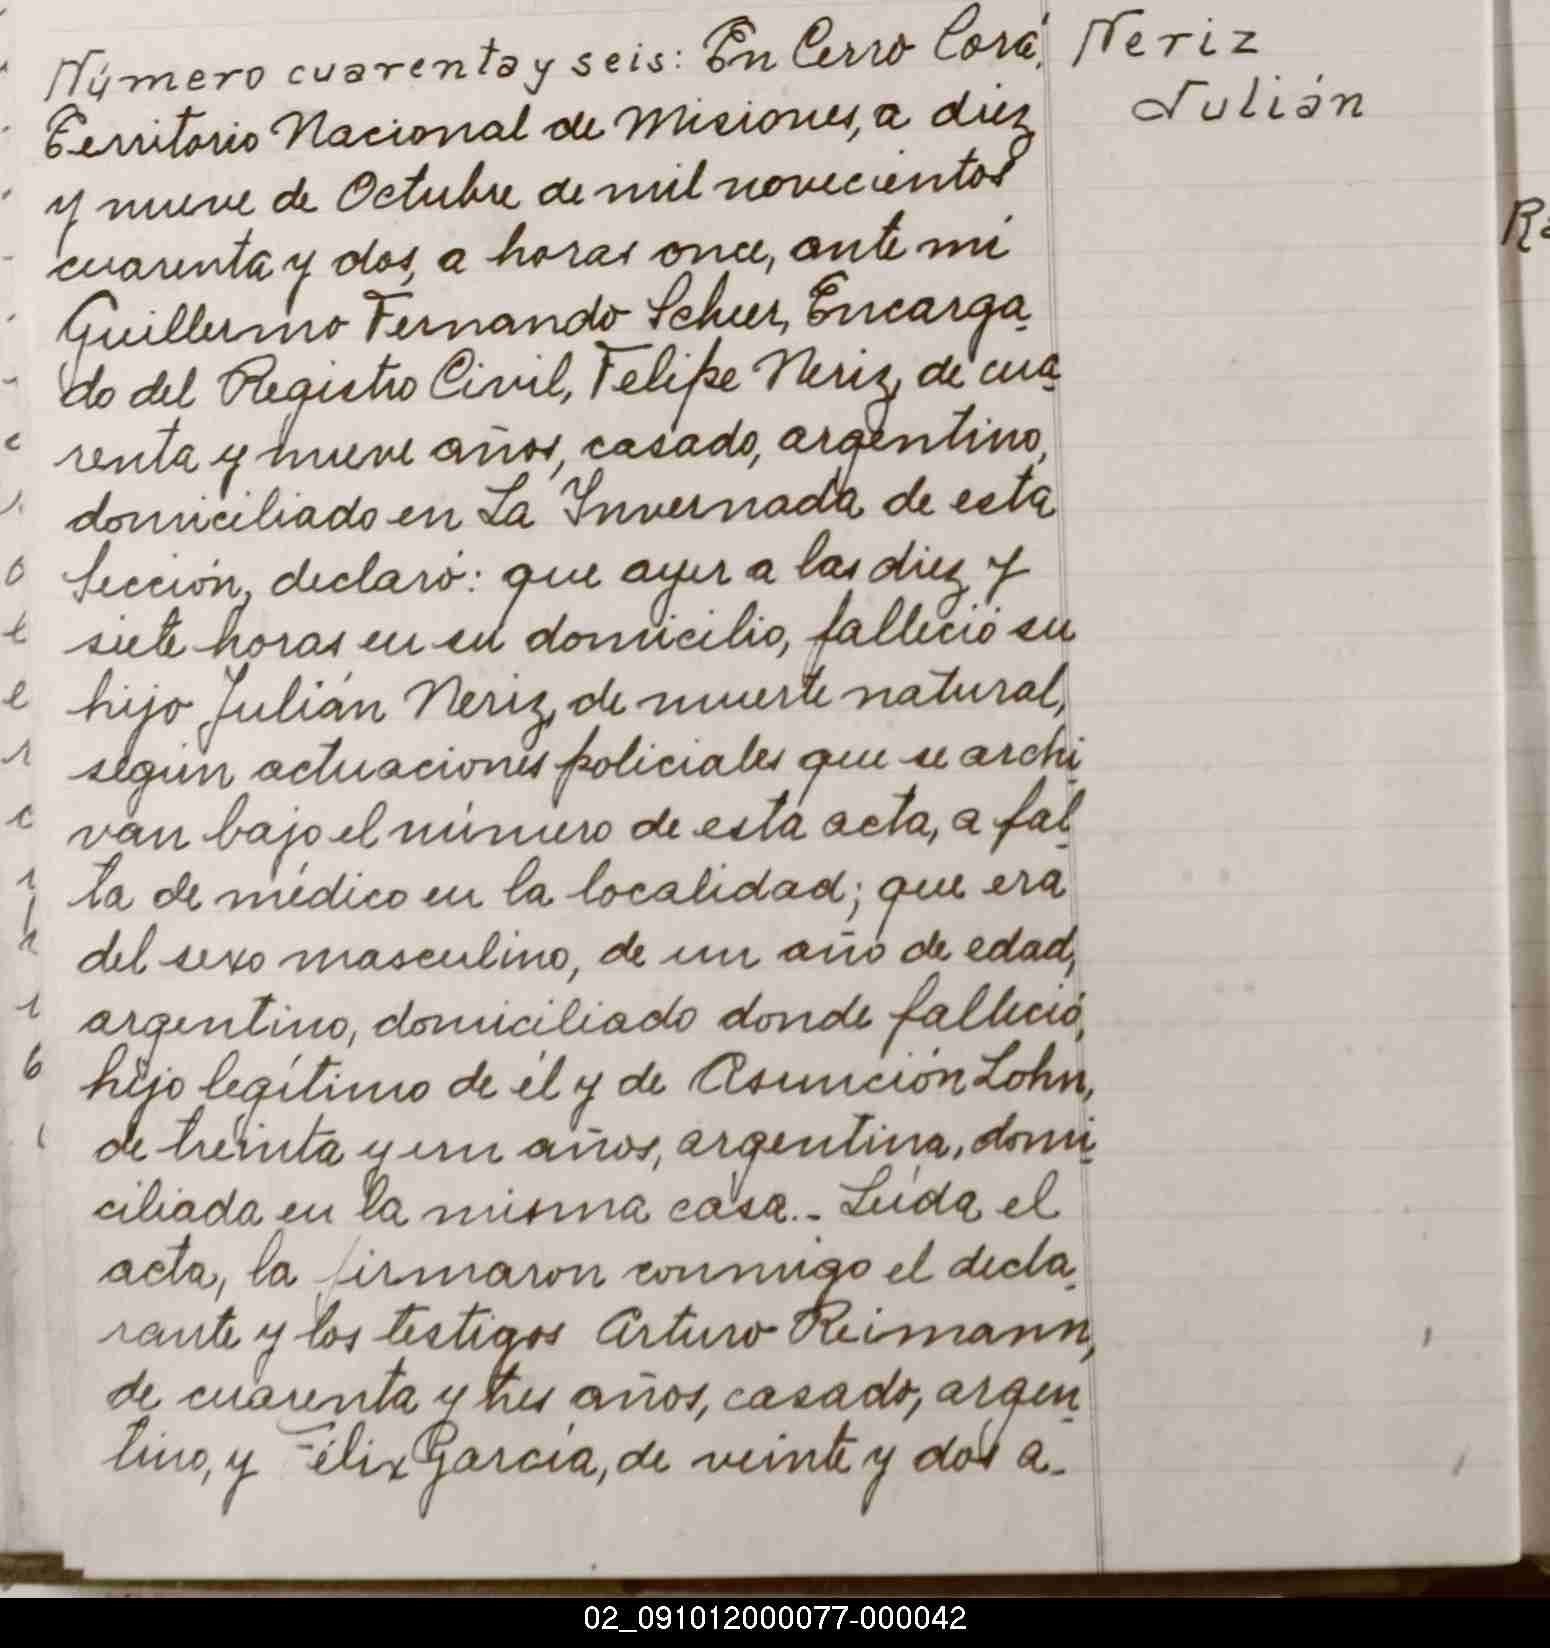 Número cuarenta y seis: En Cerro Corá,
Territorio Nacional de Misiones, a diez
y nueve de Octubre de mil novecientos
cuarenta y dos, a horas once, ante mí
Guillermo Fernando Scheer, Encarga-
do del Registro Civil, Felipe Neriz, de cua-
renta y nueve años, casado, argentino,
domiciliado en La Invernada de esta
Sección, declaró: que ayer a las diez y
siete horas en su domicilio, falleció su
hijo Julián Neriz, de muerte natural,
según actuaciones policiales que se archi-
van bajo el número de esta acta, a fal-
ta de médico en la localidad; que era
del sexo masculino, de un año de edad,
argentino, domiciliado donde falleció,
hijo legítimo de él y de Asunción Lohn,
de treinta y un años, argentina, domi-
ciliada en la misma casa.- Leída el
acta, la firmaron conmigo el decla-
rante y los testigos Arturo Reimann,
de cuarenta y tres años, casado, argen-
tino, y Félix García, de veinte y dos a-
Neriz
Julián
02_091012000077-000042